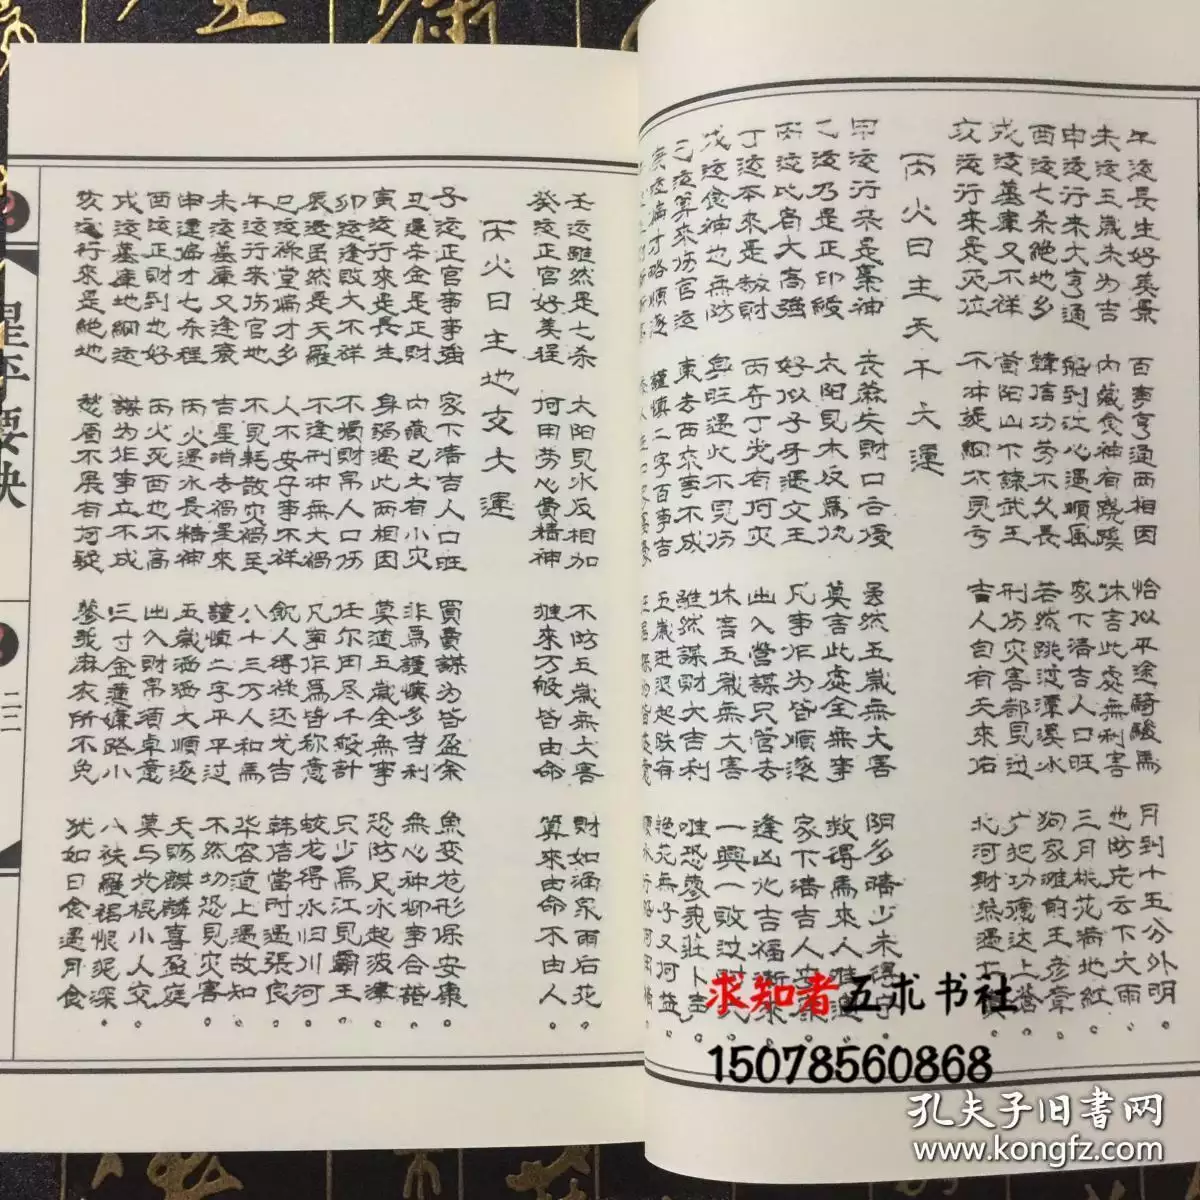 午运長生好美景 百事亨通两相因 恰似平途騎駿馬 月到十五分外明
未运五歲未为吉 内藏食神有蹺蹊 休言此處無利害 也防
申运行来大亨通 船到江心遇順風 家下清吉人口旺 三月桃花满地紅
酉运七杀絶地乡 韓信功劳不久長 若然跳过潭溪水 狗家滩前王彦章
戍运墓庫又不祥 首阳山下諫武王 刑伤灾害都見过
亥运行来是灾位 不冲提綱不見亏 吉人自有天來佑 北河財
丙火日主天干大運
甲运行来是梟神
乙运乃是正印綬 太阳見木反爲仇 莫言此處全無事
丙运比肩大高強 好似子牙遇文王 凡事作为皆順遂 家下清吉人
丁运本来是敖財 丙夺丁光有何灾 出入營謀只管去 逢凶化吉福漸來
戊运食神也無防 身旺遇火不見伤 休言五歲無大害 一興一敗过
己运算來伤官运 東去西來事不成 雖然謀財大吉利 唯恐蓼我
庚运偏才略順遂 謹慎二字百事吉 五歲进退起跌有 絶花無子又何益
壬运雖然是七杀 太阳見水反相加 不防五歲無大害 財如涌泉雨后花
癸运正官好美程 何用劳心費精神 雖来万般皆由命 算來由命不由人
丙火日主地支大運
子运正官事事強 家下清吉人口旺 買賣謀为皆盈余 魚变花形保安康
丑運辛金是正財 内藏己土有小灾 非爲謹慎多吉利 無心种柳事合諧
寅运行來是長生 身弱遇此两相因 莫道五歲全無事 恐防尺水起波濤
卯运逢敗大不祥 不損財帛人口伤 任尔用尽千般計 只少烏江見霸王
辰运虽然是天羅 不逢刑冲無大禍 凡事作爲皆称意 蛟龙得水归川河
巳运禄堂偏才乡 人不安宁事不祥 飢人得禄还尤吉 韩信當时遇張良
午运行来伤官地 不見耗散灾禍至 八十三万人和馬 华容道上遇故知
未运墓庫又逢衰 吉星消去禍星來 謹慎二字平平过 不然切恐見灾害
申運偏才七杀程 丙火遇水長精神 五歲滔滔大順遂 天赐麒麟喜盈庭
酉运正財到也好 丙火死酉也不高 出入財帛須卓意 莫与光棍小人交
戌运墓庫地網运 謀为作事立不成 三寸金蓮嫌路小 八袄羅裙恨泥深
亥运行來是絶地 愁眉不展有何疑 蓼我麻衣所不免 犹如日食遇月食
星平要訣
二二
求知者五术书社
15078560868
孔夫子旧书网
www.kongfz.com